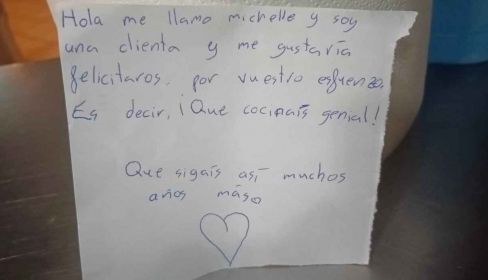 Hola me llamo michelle y soy
una clienta y me gustaría
felicitaros. por vuestro esfuenzo.
Es decir, ¡Que cocinais genial!
Que sigais así muchos
años más